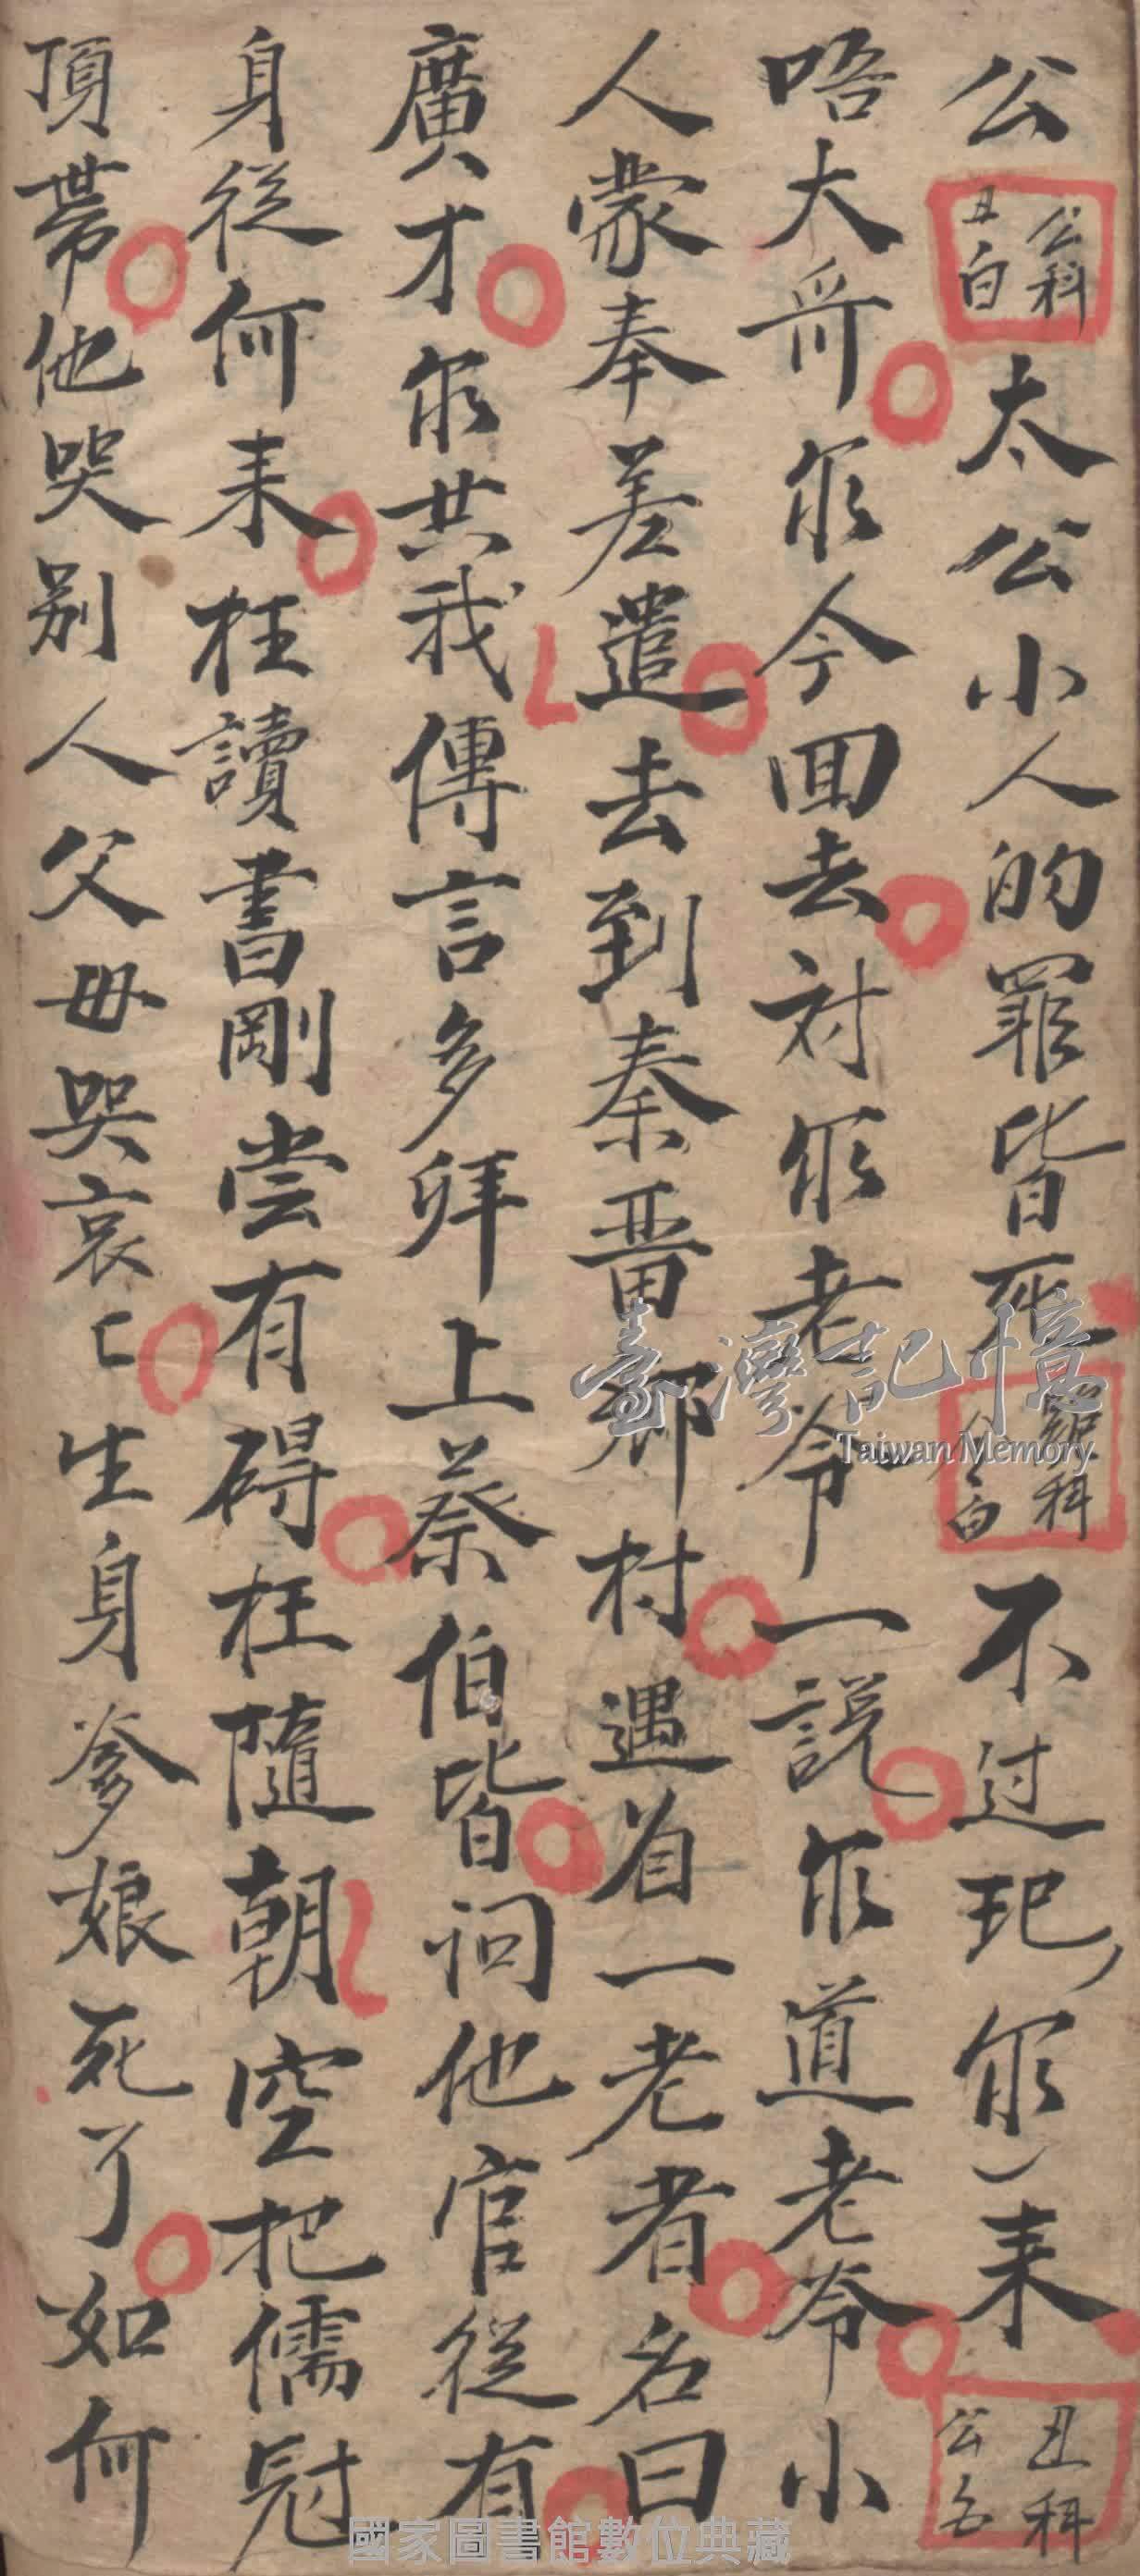 公公科丑白太公小人的罪皆死科公白不过玘你来丑科公白
唔大哥你今回去対你老令一説你道老冷小
人蒙奉差遣去到秦晋鄉村遇着一老者名曰
廣才你共我傳言多拜上蔡伯皆问他官從有
身從何来枉讀書剛尝有碍枉隨朝空把儒冠
頂帯他哭别人父毋哭哀匕生身爹娘死了如何
臺灣記憶
Taiwan Memory
國家圖書館數位典藏